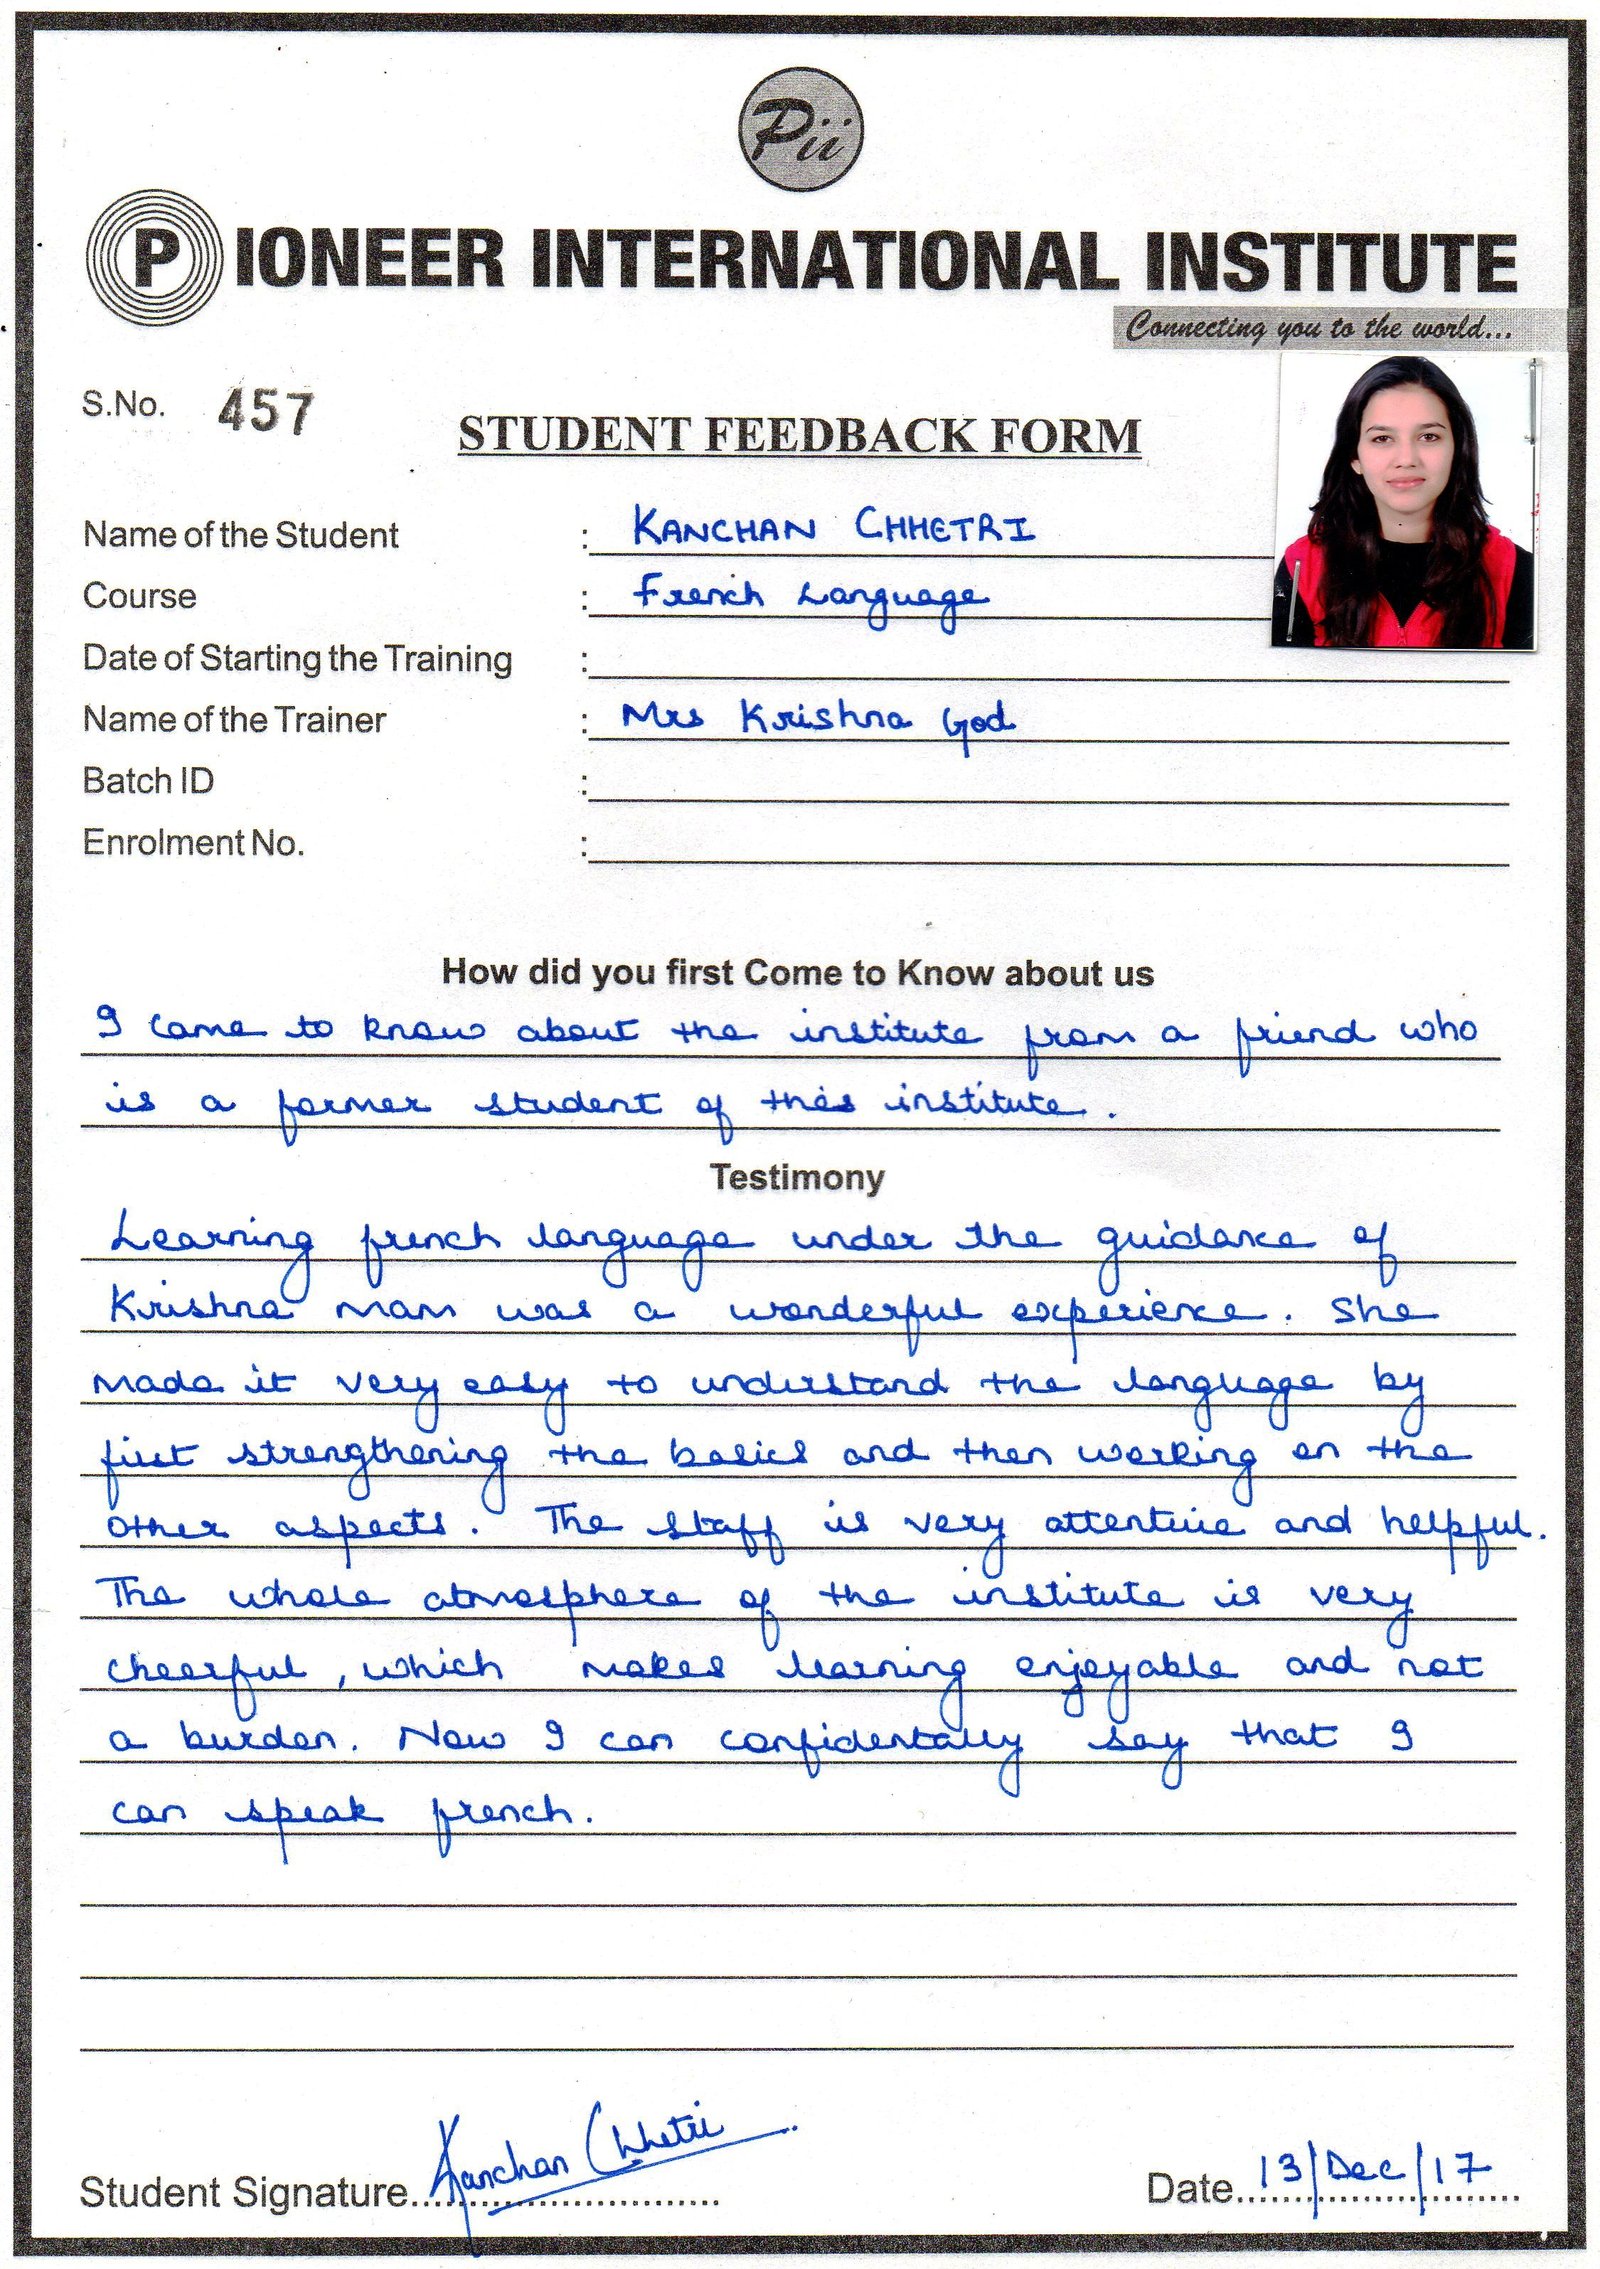 Pii
PIONEER INTERNATIONAL INSTITUTE
Connecting you to the world...
S.No. 457
STUDENT FEEDBACK FORM
Name of the Student : KANCHAN CHHETRI
Course : French Language
Date of Starting the Training :
Name of the Trainer : Mrs Krishna God
Batch ID :
Enrolment No. :
How did you first Come to Know about us
I came to know about the institute from a friend who
is a former student of this institute.
Testimony
Learning french language under the guidance of
Krishna mam was a wonderful experience. She
made it very easy to understand the language by
first strengthening the basics and then working on the
other aspects. The staff is very attentive and helpful.
The whole atmosphere of the institute is very
cheerful, which makes learning enjoyable and not
a burden. Now I can confidentally say that I
can speak french.
Student Signature Kanchan Chhetri
Date 13/Dec/17